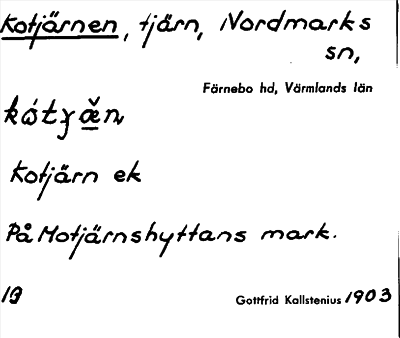 Kotjärnen, tjärn, Nordmarks
sn,
Färnebo hd, Värmlands län
Kotjärn ek
På Motjärnshyttans mark.
Gottfrid Kallstenius 1903